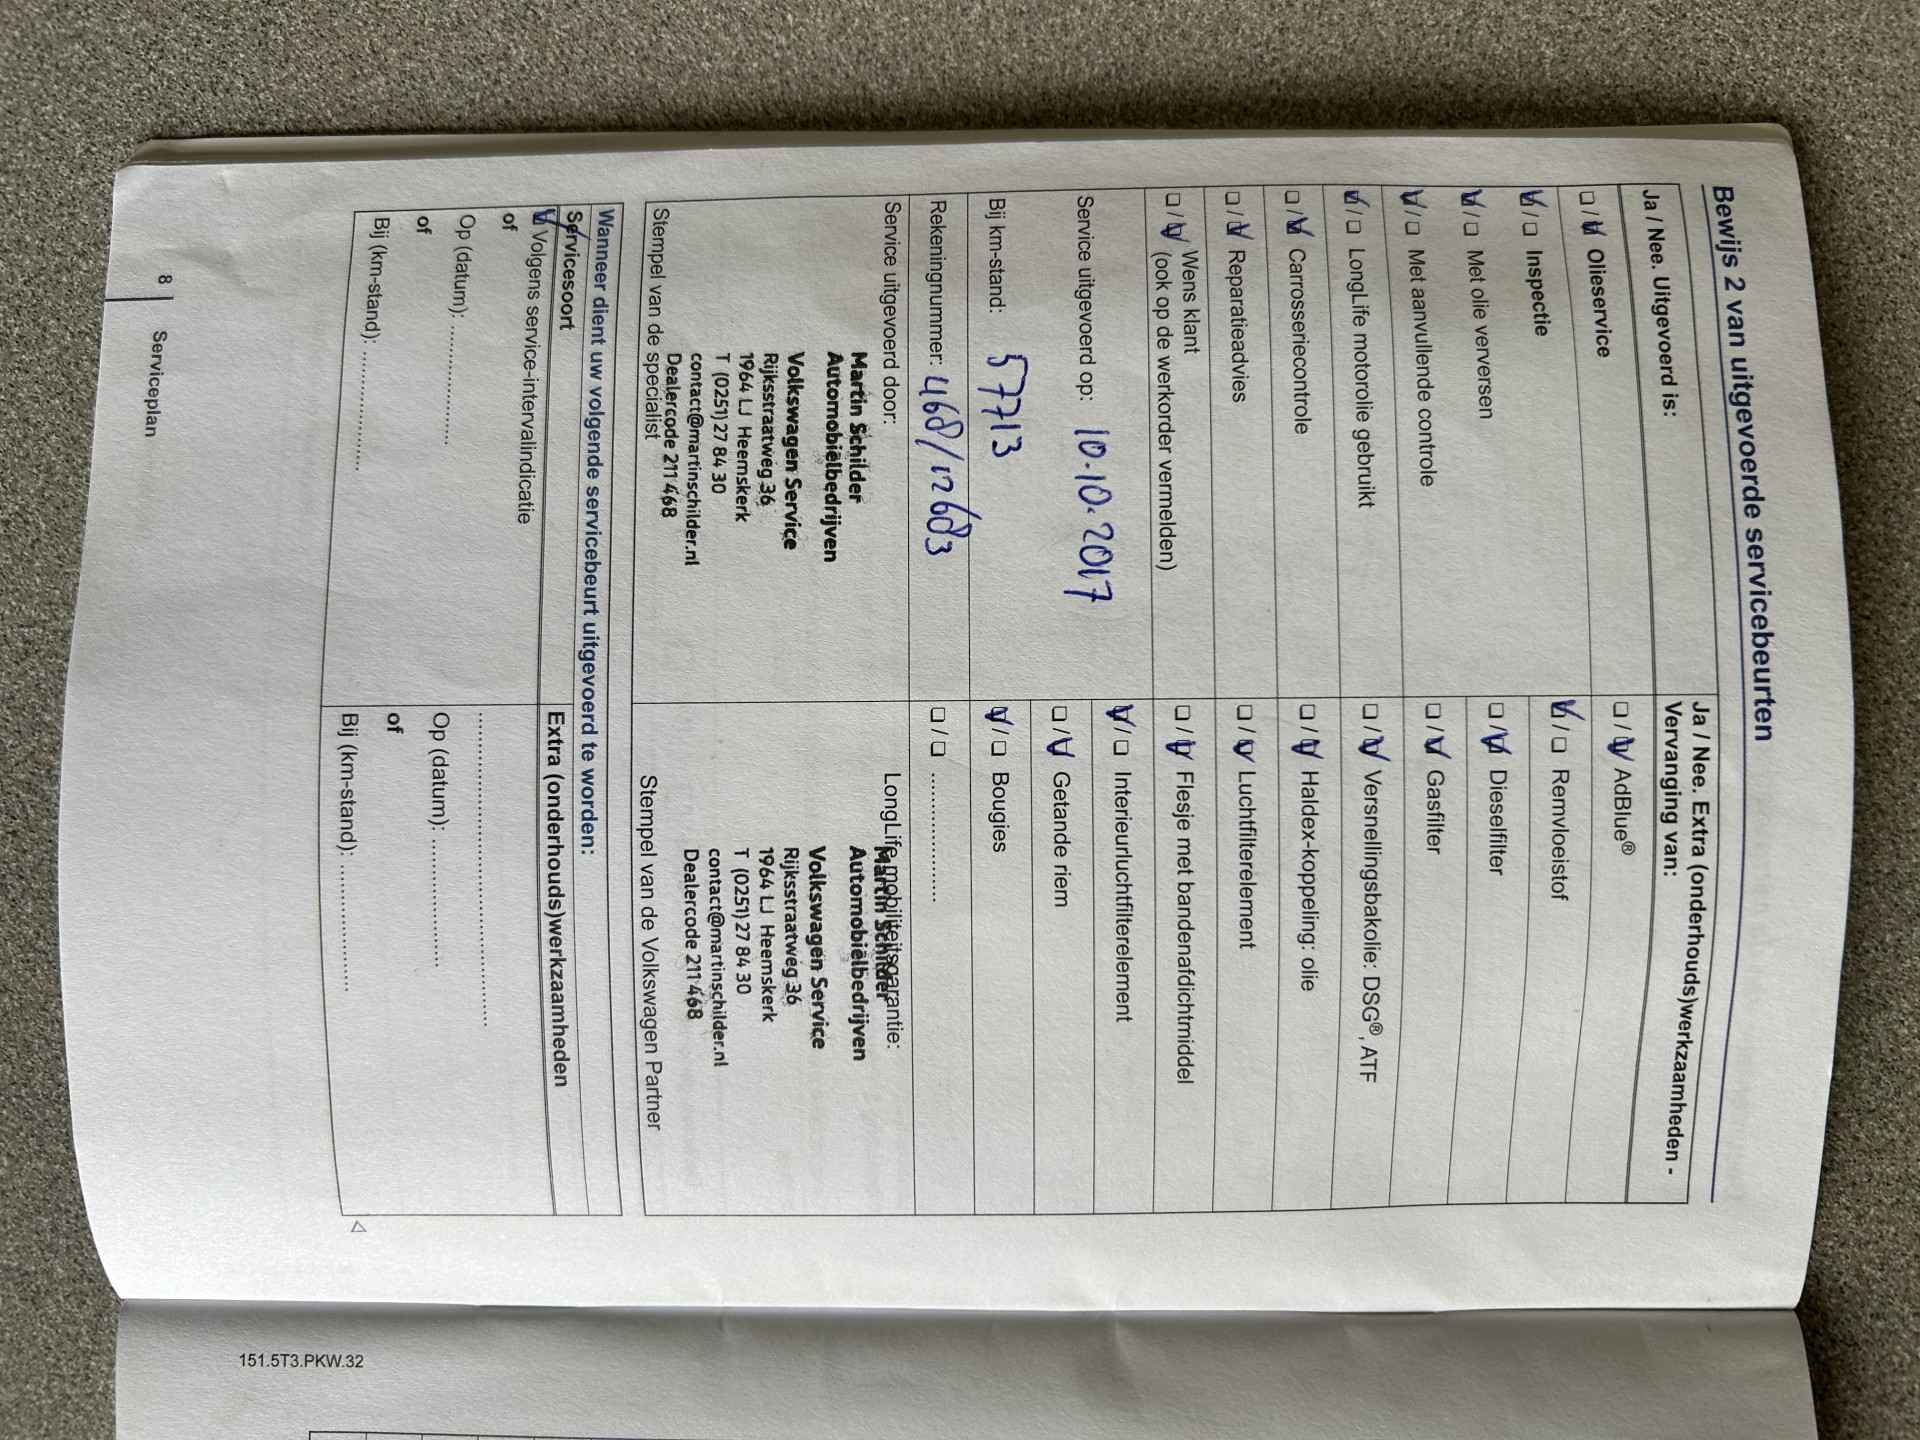 Bewijs 2 van uitgevoerde servicebeurten
Ja / Nee. Uitgevoerd is:
☐ / ☑ Olieservice
☑ / ☐ Inspectie
☑ / ☐ Met olie verversen
☑ / ☐ Met aanvullende controle
☑ / ☐ LongLife motorolie gebruikt
☐ / ☑ Carrosseriecontrole
☐ / ☑ Reparatieadvies
☐ / ☑ Wens klant
(ook op de werkorder vermelden)
Service uitgevoerd op: 10.10.2017
Bij km-stand: 57713
Rekeningnummer: 468/12683
Service uitgevoerd door:
Martin Schilder
Automobielbedrijven
Volkswagen Service
Rijksstraatweg 36
1964 LJ Heemskerk
T (0251) 27 84 30
contact@martinschilder.nl
Dealercode 211 468
Stempel van de specialist
Ja / Nee. Extra (onderhouds)werkzaamheden -
Vervanging van:
☐ / ☑ AdBlue®
☑ / ☐ Remvloeistof
☐ / ☑ Dieselfilter
☐ / ☑ Gasfilter
☐ / ☑ Versnellingsbakolie: DSG®, ATF
☐ / ☑ Haldex-koppeling: olie
☐ / ☑ Luchtfilterelement
☐ / ☑ Flesje met bandenafdichtmiddel
☑ / ☐ Interieurluchtfilterelement
☐ / ☑ Getande riem
☑ / ☐ Bougies
☐ / ☐ ......................
LongLife mobiliteitsgarantie:
Martin Schilder
Automobielbedrijven
Volkswagen Service
Rijksstraatweg 36
1964 LJ Heemskerk
T (0251) 27 84 30
contact@martinschilder.nl
Dealercode 211 468
Stempel van de Volkswagen Partner
Wanneer dient uw volgende servicebeurt uitgevoerd te worden:
Servicesoort
☑ Volgens service-intervalindicatie
of
Op (datum): ......................
of
Bij (km-stand): ......................
Extra (onderhouds)werkzaamheden
......................................................
Op (datum): ......................
of
Bij (km-stand): ......................
◁
8
Serviceplan
151.5T3.PKW.32